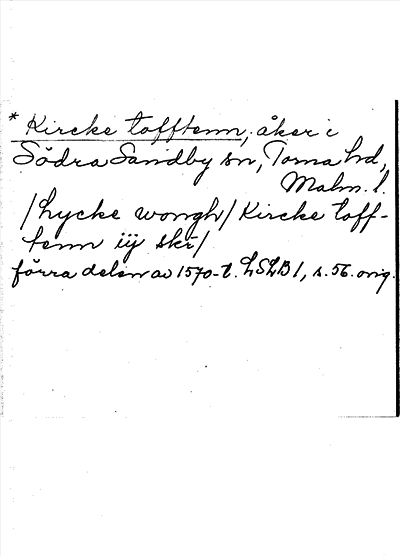 * Kircke tofftenn, åker i
Södra Sandby sn, Torna hd,
Malm. l.
/Lycke wongh/ Kircke toff-
tenn iij skr/
förra delen av 1570-t. LSLB 1, s. 56. orig.